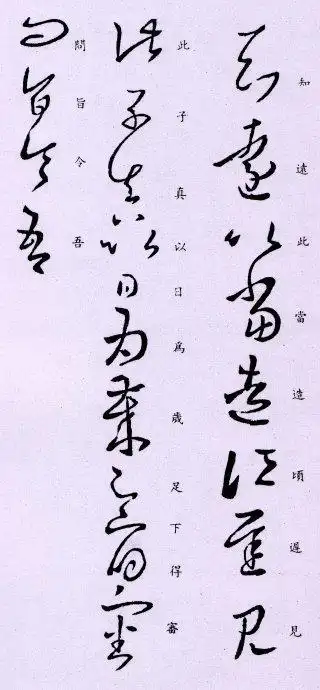 知遠此當造頃遲見
此子真以日為歲足下得審
問旨令吾